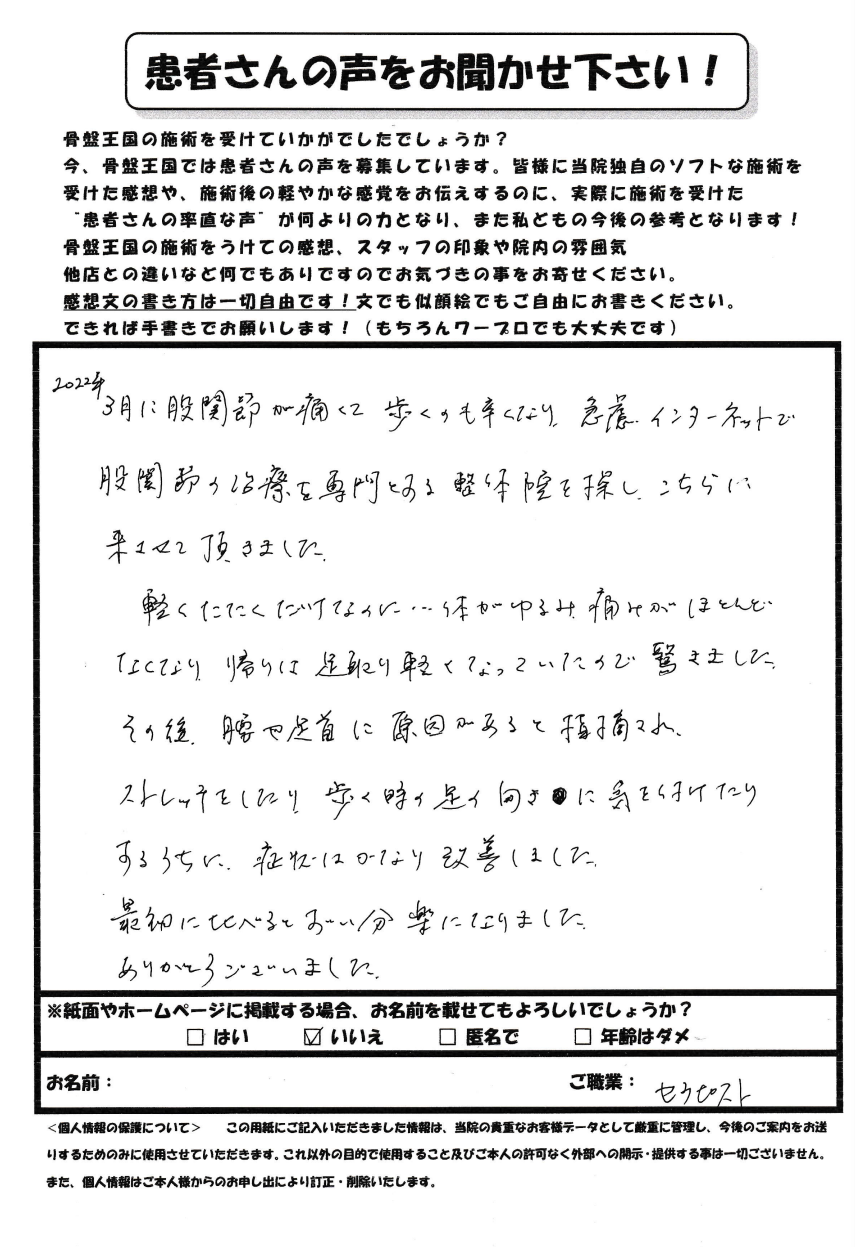 患者さんの声をお聞かせ下さい！
骨盤王国の施術を受けていかがでしたでしょうか？
今、骨盤王国では患者さんの声を募集しています。皆様に当院独自のソフトな施術を
受けた感想や、施術後の軽やかな感覚をお伝えするのに、実際に施術を受けた
"患者さんの率直な声"が何よりの力となり、また私どもの今後の参考となります！
骨盤王国の施術をうけての感想、スタッフの印象や院内の雰囲気
他店との違いなど何でもありですのでお気づきの事をお寄せください。
感想文の書き方は一切自由です！文でも似顔絵でもご自由にお書きください。
できれば手書きでお願いします！（もちろんワープロでも大丈夫です）
2022年
3月に股関節が痛くて歩くのも辛くなり、急慮、インターネットで
股関節の治療を専門とする整体院を探し、こちらに
来させて頂きました。
軽くたたくだけなのに…体がゆるみ痛みがほとんど
なくなり、帰りは足取り軽くなっていたので驚きました。
その後、腰や足首に原因があると指摘され、
ストレッチをしたり、歩く時の足の向きに気を付けたり
するうちに、症状はかなり改善しました。
最初に比べるとずい分楽になりました。
ありがとうございました。
※紙面やホームページに掲載する場合、お名前を載せてもよろしいでしょうか？
□ はい ☑ いいえ □ 匿名で □ 年齢はダメ
お名前： ご職業： セラピスト
＜個人情報の保護について＞ この用紙にご記入いただきました情報は、当院の貴重なお客様データとして厳重に管理し、今後のご案内をお送
りするためのみに使用させていただきます。これ以外の目的で使用すること及びご本人の許可なく外部への開示・提供する事は一切ございません。
また、個人情報はご本人様からのお申し出により訂正・削除いたします。